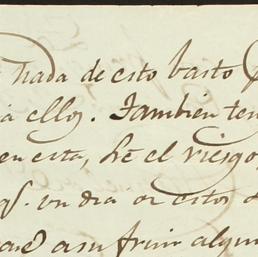 nada de esto basto
a ellos. Tambien ten
en esta, hé el riesgo
un dia de estos
a sufrir algun